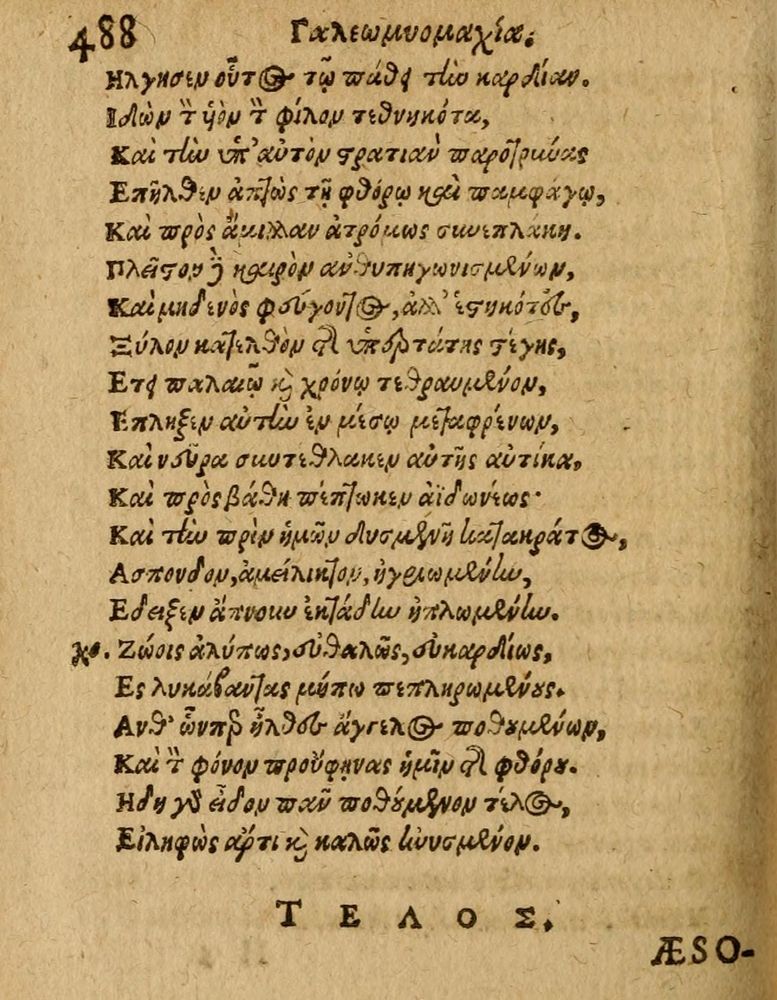 488 Γαλεωμυομαχία.
Ηλγησεν οὗτος τῷ πάθει τὴν καρδίαν.
Ιδὼν τὸν ὑὸν τὸν φίλον τεθνηκότα,
Καὶ τὴν ὑπ' αὐτὸν στρατιὰν παροτρύνας
Επῆλθεν ἀπτὼς τῇ φθόρῳ καὶ παμφάγῳ,
Καὶ πρὸς ἅμιλλαν ἀτρόμως συνεπλάκη.
Πλεῖστον δὲ καιρὸν ἀνθυπηγωνισμένων,
Καὶ μηδενὸς φεύγοντος, ἀλλ' ἑστηκότος,
Ξύλον κατελθὸν ἐκ ὑπερτάτης στέγης,
Ετι παλαιῷ καὶ χρόνῳ τεθραυμένον,
Επληξεν αὐτὴν ἐν μέσῳ μεταφρένων,
Καὶ νεῦρα συντέθλακεν αὐτῆς αὐτίκα,
Καὶ πρὸς βάθη πέπτωκεν ἀϊδωνέως·
Καὶ τὴν πρὶν ἡμῶν δυσμενῆ κατακράτος,
Ασπονδον, ἀμείλικτον, ἠγριωμένην,
Εδειξεν ἄπνουν ἐκτάδην ἡπλωμένην.
χο. Ζώοις ἀλύπως, εὐθαλῶς, εὐκαρδίως,
Ες λυκάβαντας μήπω πεπληρωμένους.
Ανθ' ὧνπερ ἦλθες ἄγγελος ποθουμένων,
Καὶ τὸν φόνον προὔφηνας ἡμῖν ἐκ φθόρου.
Ηδη γὰρ εἶδον πᾶν ποθούμενον τέλος,
Εἰληφὼς ἄρτι καὶ καλῶς ἠνυσμένον.
ΤΕΛΟΣ.
ÆSO-